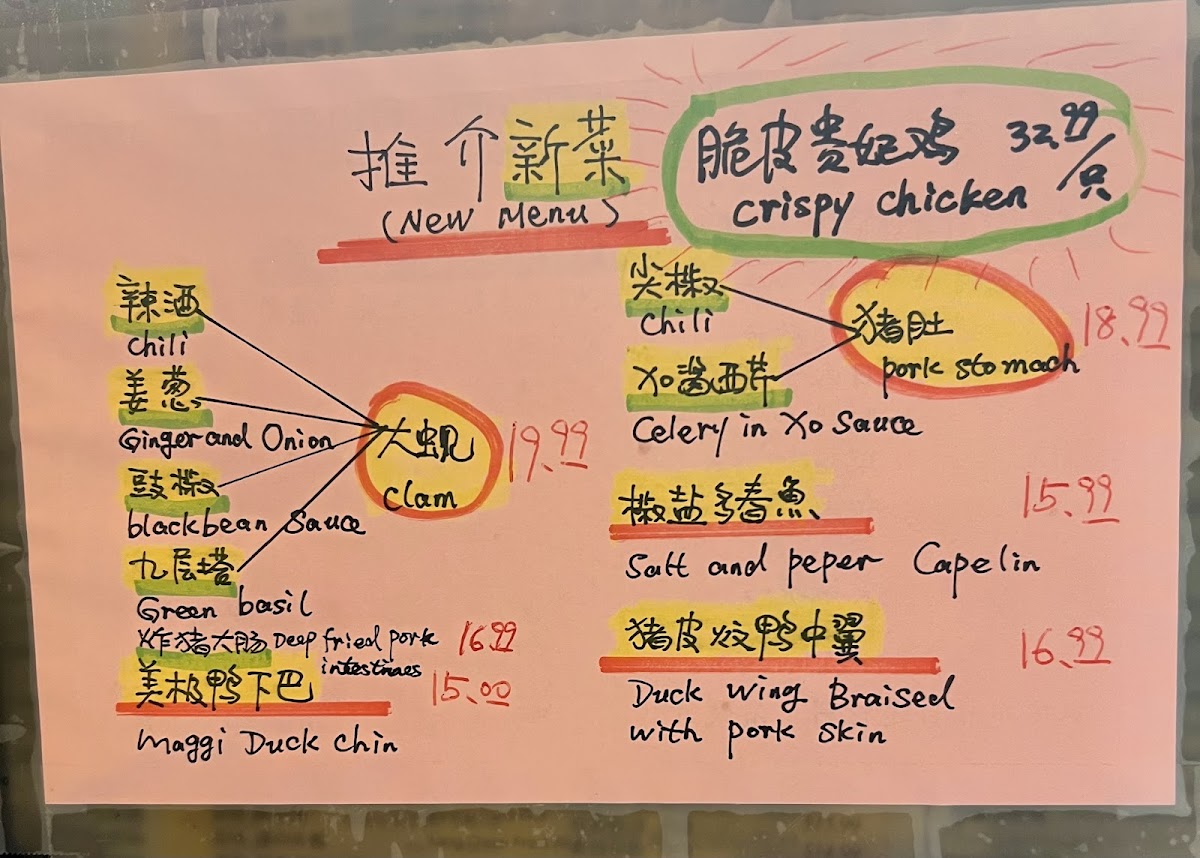 推介新菜
(New Menu)
脆皮贵妃鸡 32.99/只
crispy chicken
辣酒
chili
姜葱
Ginger and Onion
豉椒
blackbean Sauce
九层塔
Green basil
大蚬
clam
19.99
炸猪大肠 Deep fried pork
intestines
16.99
美极鸭下巴
15.00
Maggi Duck chin
尖椒
chili
XO酱西芹
Celery in XO Sauce
猪肚
pork stomach
18.99
椒盐多春魚
15.99
Salt and peper Capelin
猪皮炆鸭中翼
16.99
Duck wing Braised
with pork skin